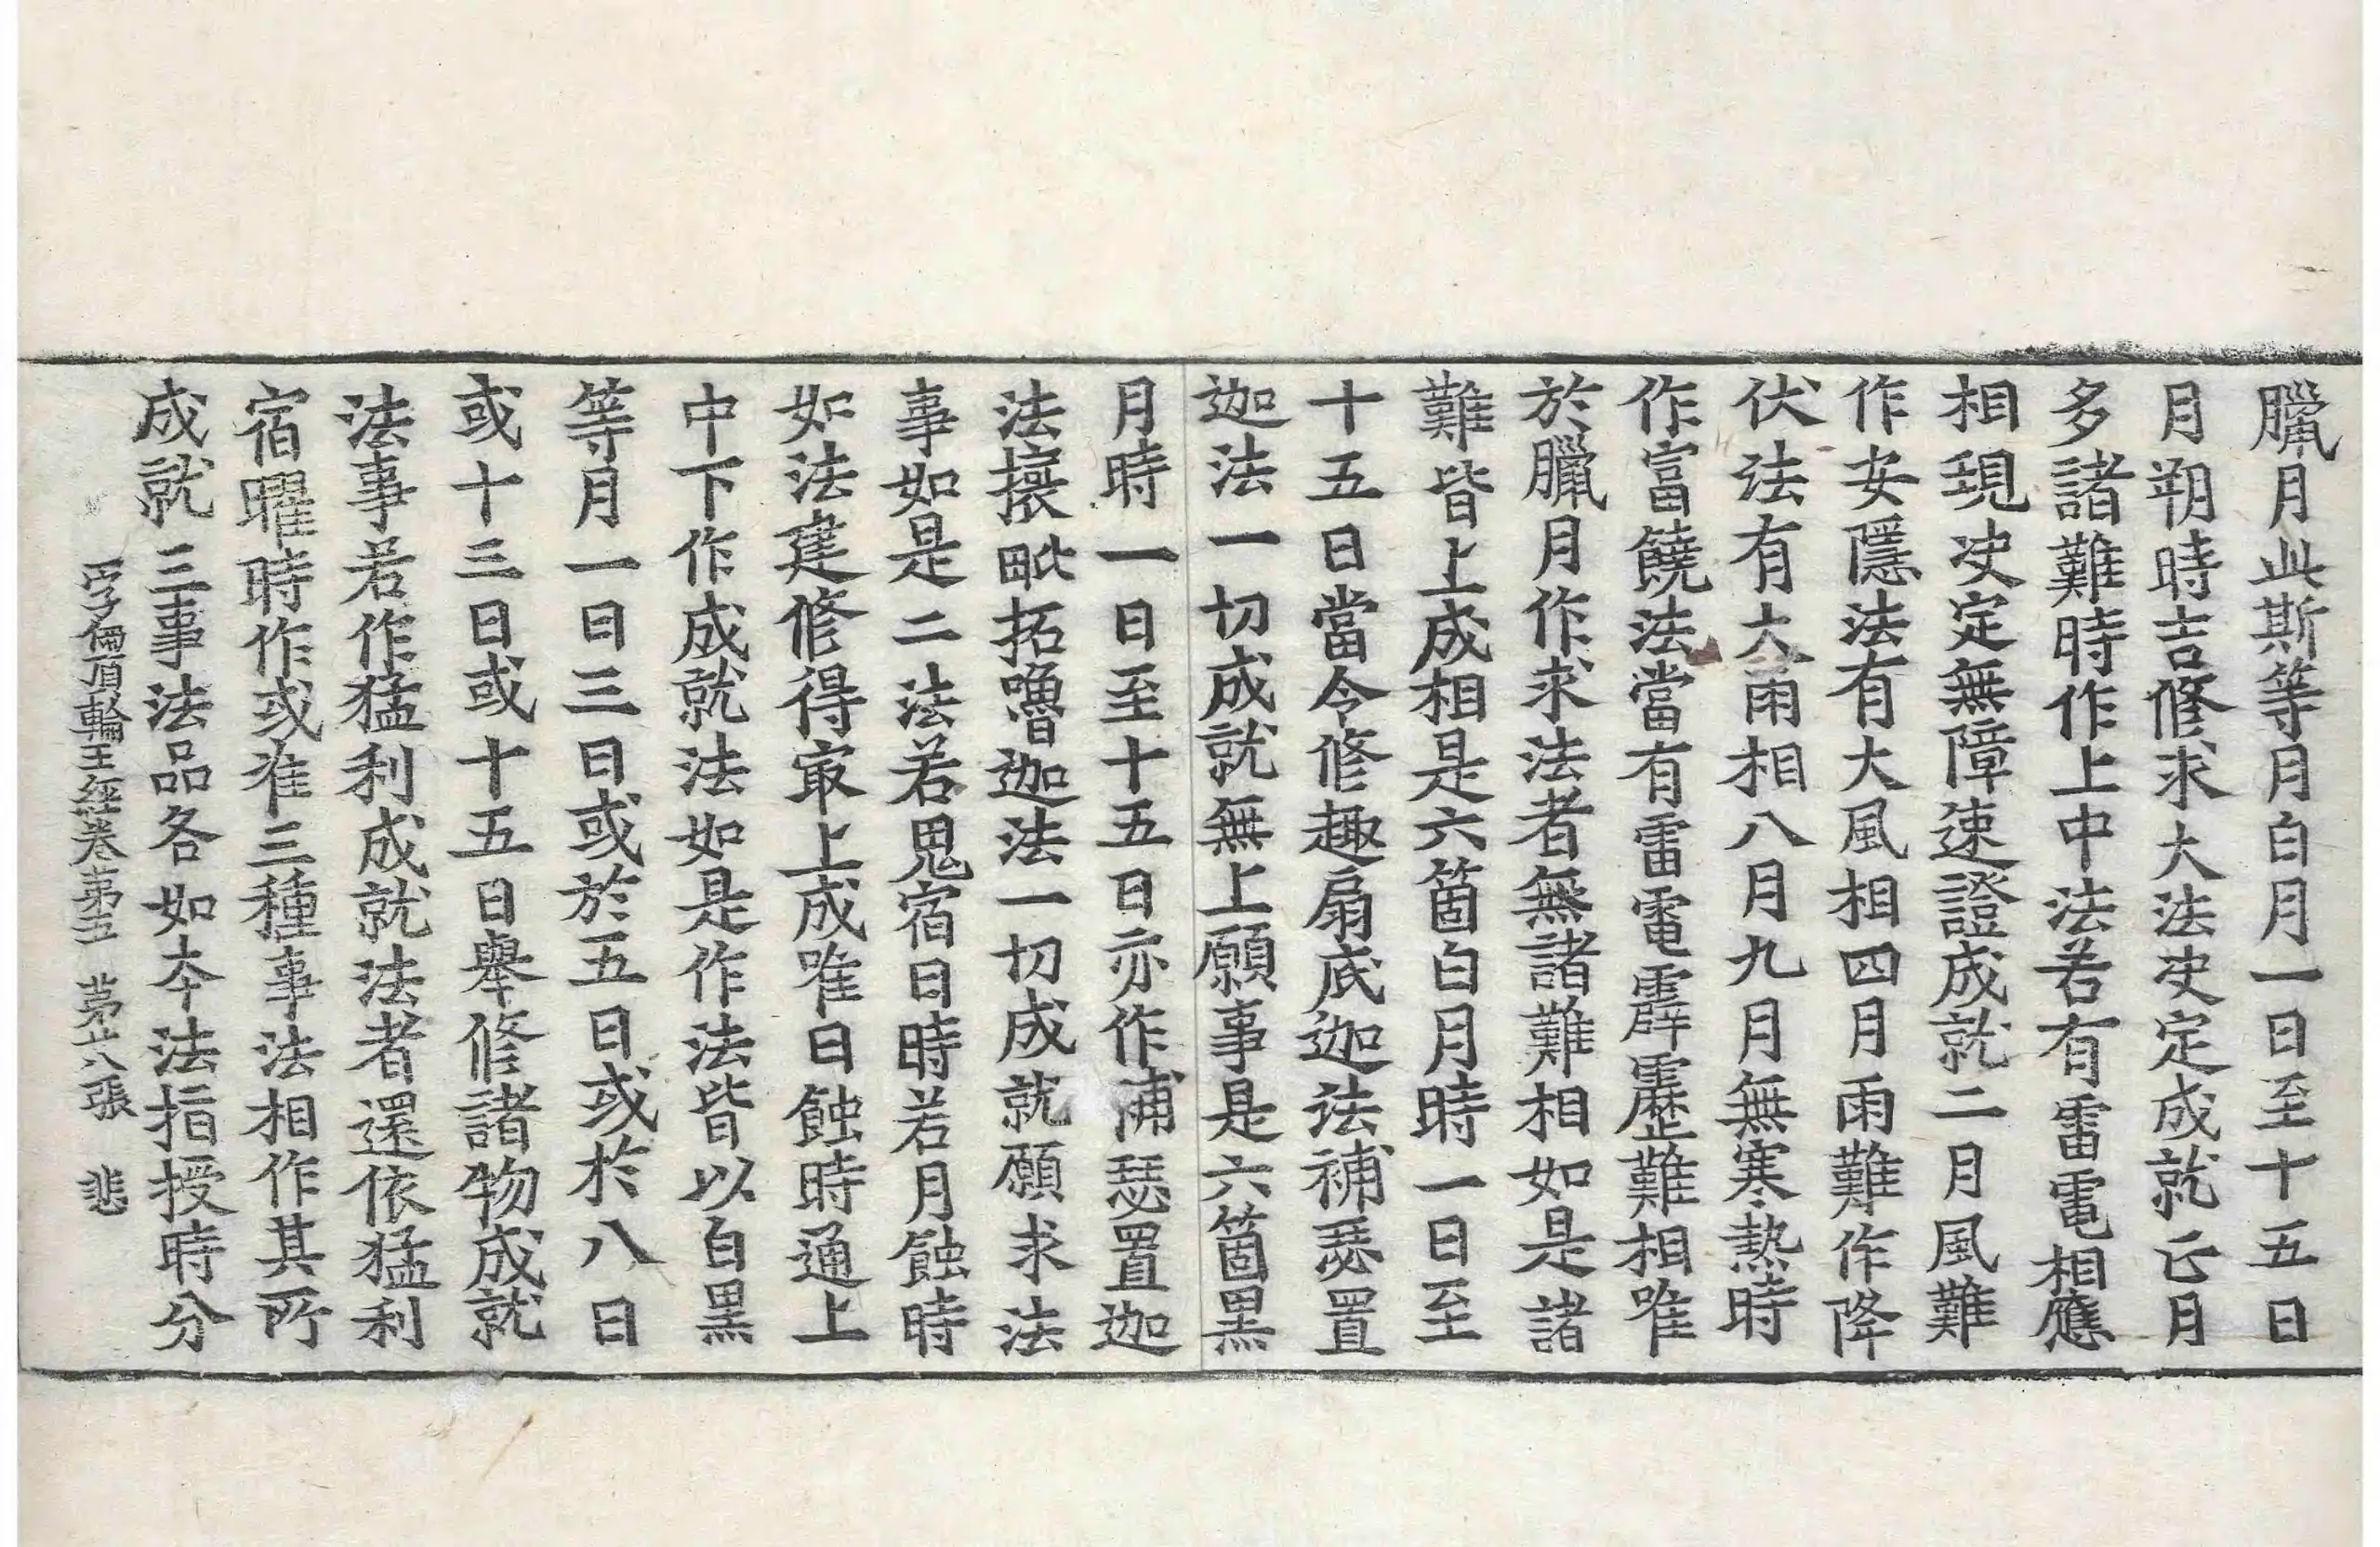 臘月此斯等月白月一日至十五日
月朔時吉修求大法決定成就正月
多諸難時作上中法若有雷電相應
相現決定無障速證成就二月風難
作安隱法有大風相四月雨難作降
伏法有大雨相八月九月無寒熱時
作富饒法當有雷電霹靂難相唯
於臘月作求法者無諸難相如是諸
難皆上成相是六箇白月時一日至
十五日當令修趣扇底迦法補瑟置
迦法一切成就無上願事是六箇黑
月時一日至十五日亦作補瑟置迦
法攘毗拓嚕迦法一切成就願求法
事如是二法若鬼宿日時若月蝕時
如法建修得冣上成唯日蝕時通上
中下作成就法如是作法皆以白黑
等月一日三日或於五日或於八日
或十三日或十五日舉修諸物成就
法事若作猛利成就法者還依猛利
宿曜時作或准三種事法相作其所
成就三事法品各如本法指授時分
一字佛頂輪王經卷第五 第十八張 悲